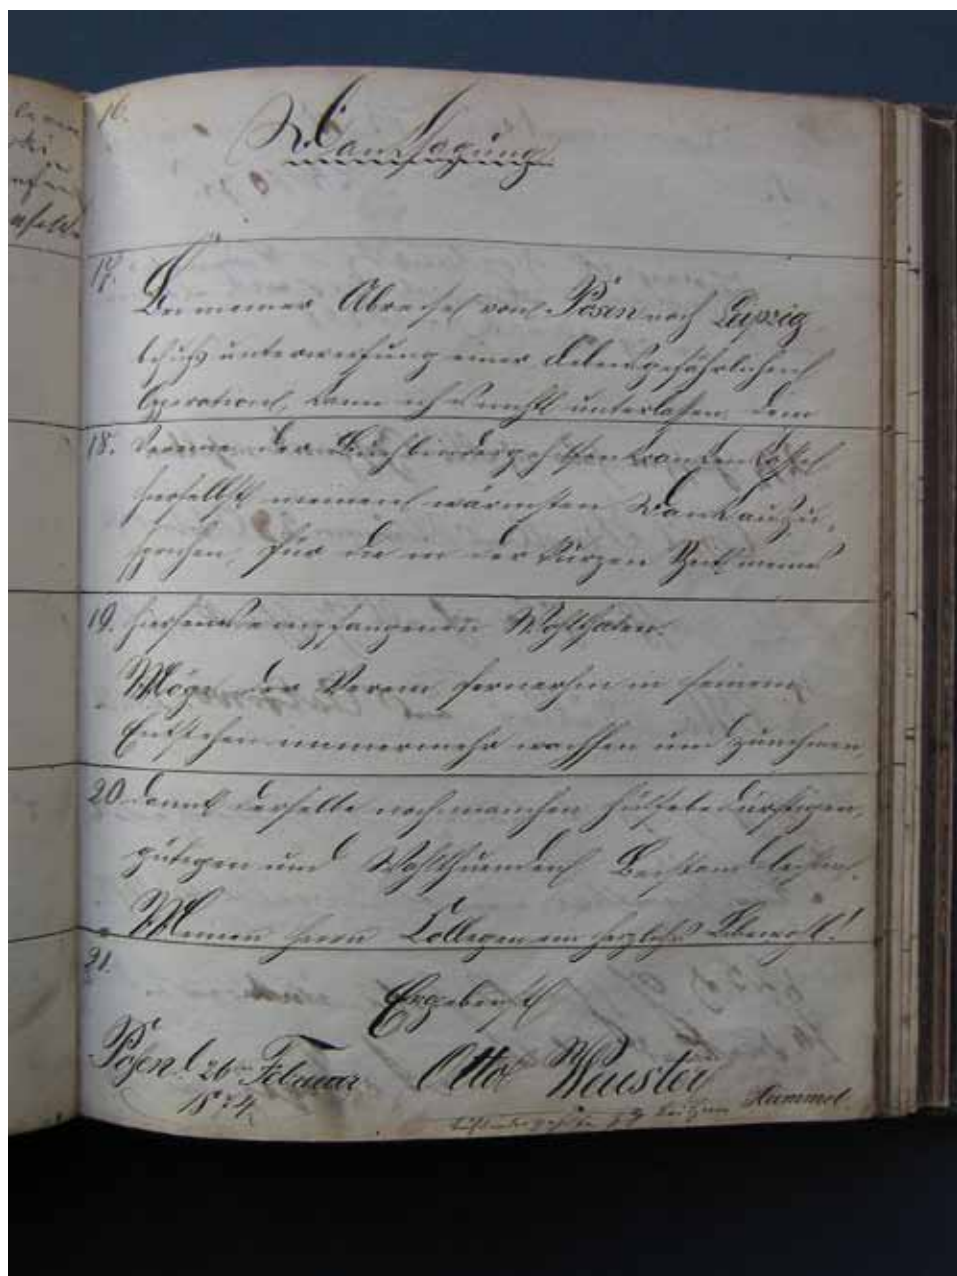 16.
Danksagung
17.
Bei meiner Abreise von Posen nach Leipzig
behufs unterwerfung einer Lebensgefährlichen
Operation, kann ich es nicht unterlassen, dem
18. Vereine der Buchbindergehilfen Kranken
hierselbst meinen wärmsten Dank auszu-
sprechen, für die in der kurzen Zeit meines
19. Hierseins empfangenen Wohlthaten.
Möge der Verein fernerhin in seinem
immermehr wachsen und zunehmen,
20. damit derselbe noch manchen hülfebedürftigen,
gütigen und Wohlthuenden Beistand leisten.
Meinen Herrn Collegen ein herzliches Lebewohl!
21.
Ergebenst
Posen d. 26ten Februar Otto
1874 Hummel.